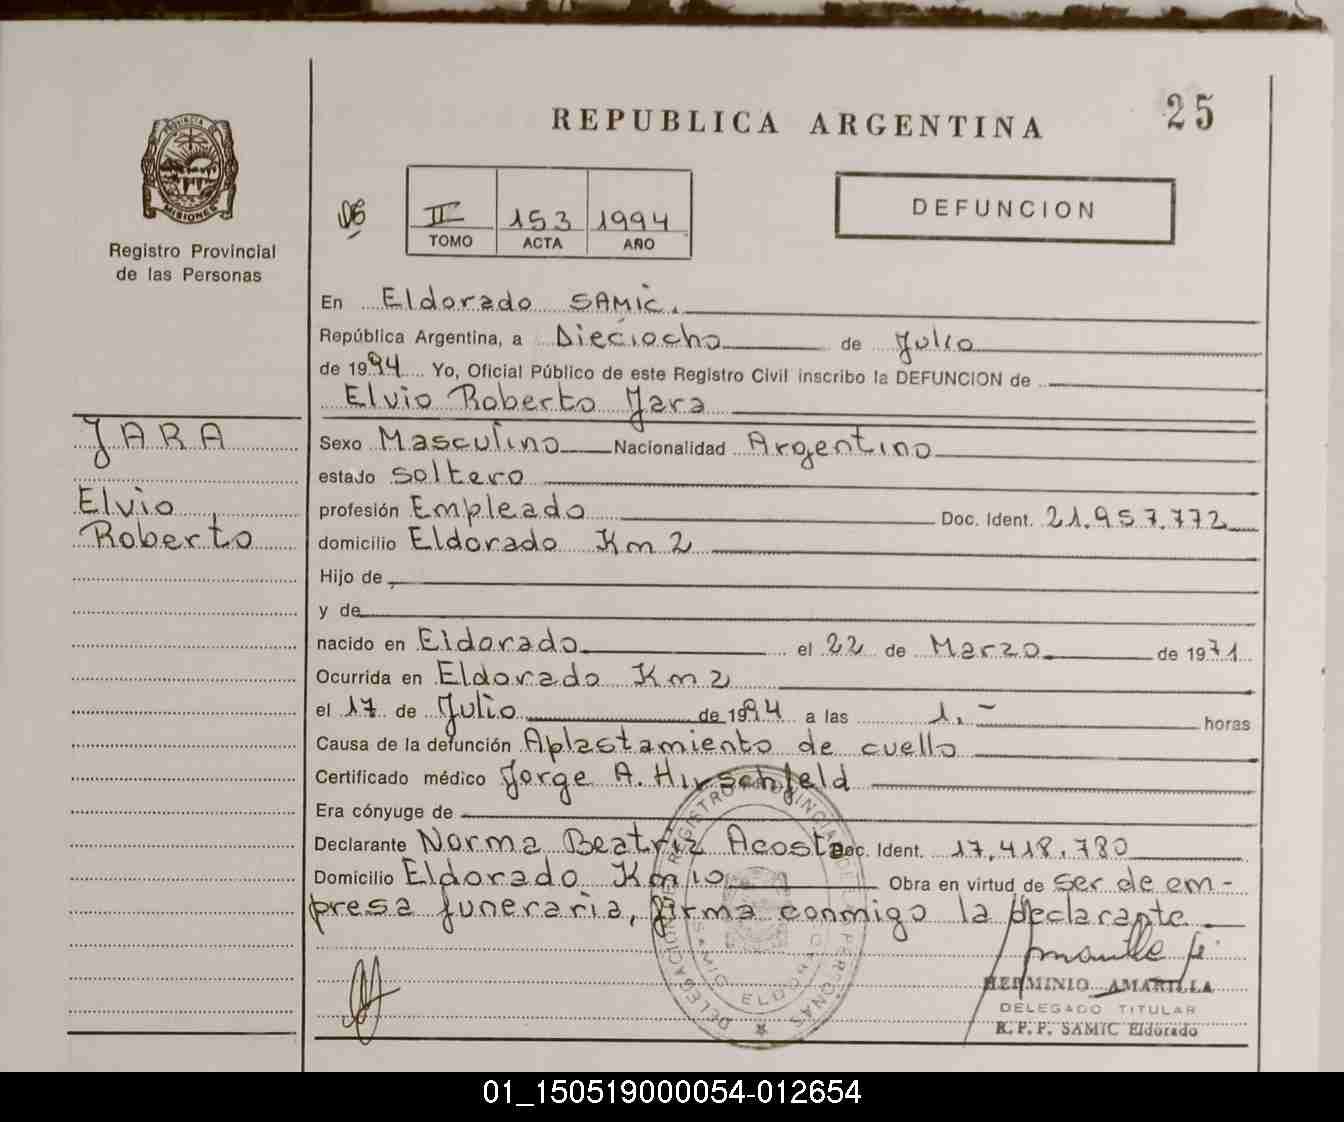 25
REPUBLICA ARGENTINA
PROVINCIA DE
MISIONES
Registro Provincial
de las Personas
II 153 1994
TOMO ACTA AÑO
DEFUNCION
En Eldorado SAMIC.
República Argentina, a Dieciocho de Julio
de 1994 Yo, Oficial Público de este Registro Civil inscribo la DEFUNCION de
Elvio Roberto Jara
JARA
Elvio
Roberto
Sexo Masculino Nacionalidad Argentino
estado soltero
profesión Empleado Doc. Ident. 21.957.772
domicilio Eldorado Km 2
Hijo de
y de
nacido en Eldorado el 22 de Marzo de 1971
Ocurrida en Eldorado Km 2
el 17 de Julio de 1994 a las 1.- horas
Causa de la defunción Aplastamiento de cuello
Certificado médico Jorge A. Hirschfeld
Era cónyuge de
Declarante Norma Beatriz Acosta Doc. Ident. 17.418.780
Domicilio Eldorado Km 10 Obra en virtud de ser de em-
presa funeraria, firma conmigo la declarante
DELEGACION REGISTRO PROVINCIAL DE LAS PERSONAS
SAMIC ELDORADO
HERMINIO AMARILLA
DELEGADO TITULAR
R. P. P. SAMIC Eldorado
01_150519000054-012654